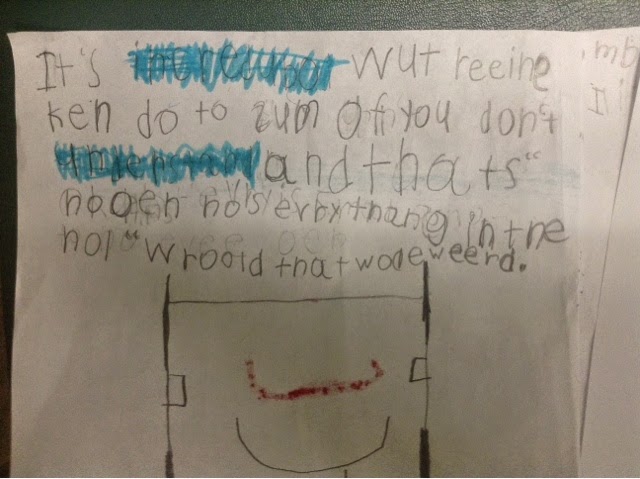 It's wut reeing
ken do to zum of you don't
and thats"
nooen no's ervrthang in the
hol "wroold that wode weerd.
mb